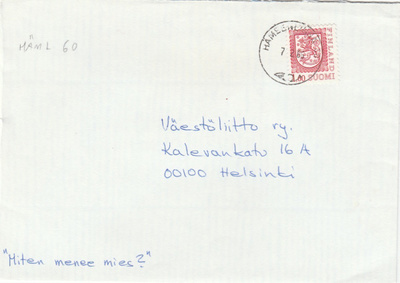 HÄML 60
FINLAND
SUOMI
Väestöliitto ry.
Kalevankatu 16 A
00100 Helsinki
"Miten menee mies?"